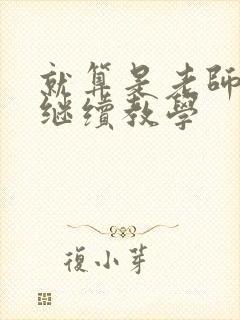 就算是老師
继續教學
復小芽